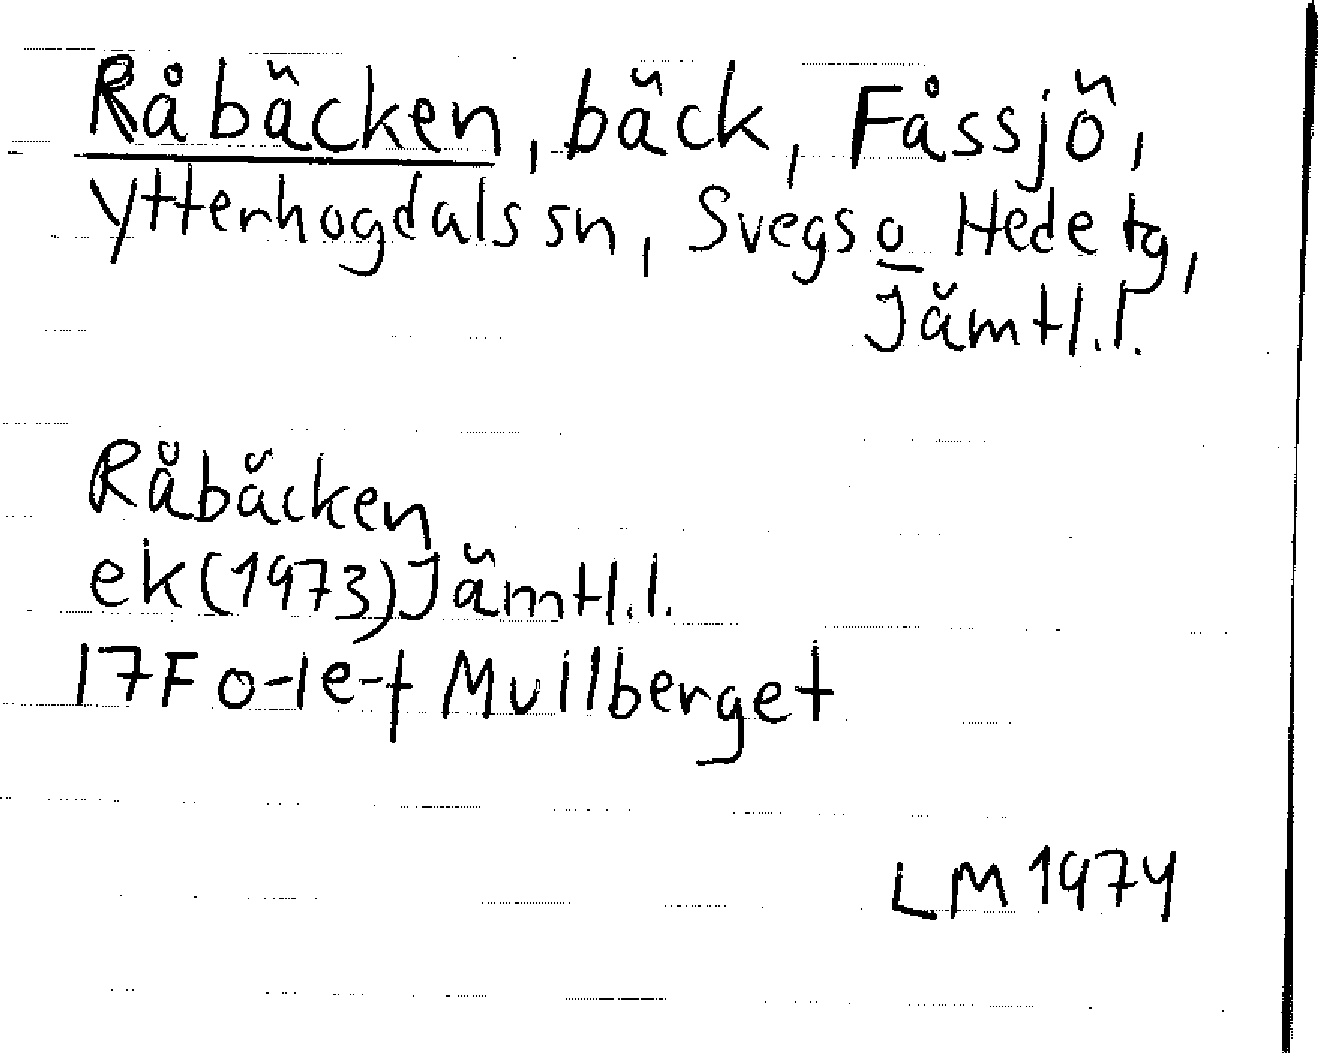 Råbäcken, bäck, Fåssjö,
Ytterhogdals sn, Svegs o Hede tg,
Jämtl.l.
Råbäcken
ek(1973)Jämtl.l.
17F o-1e-f Mullberget
LM 1974